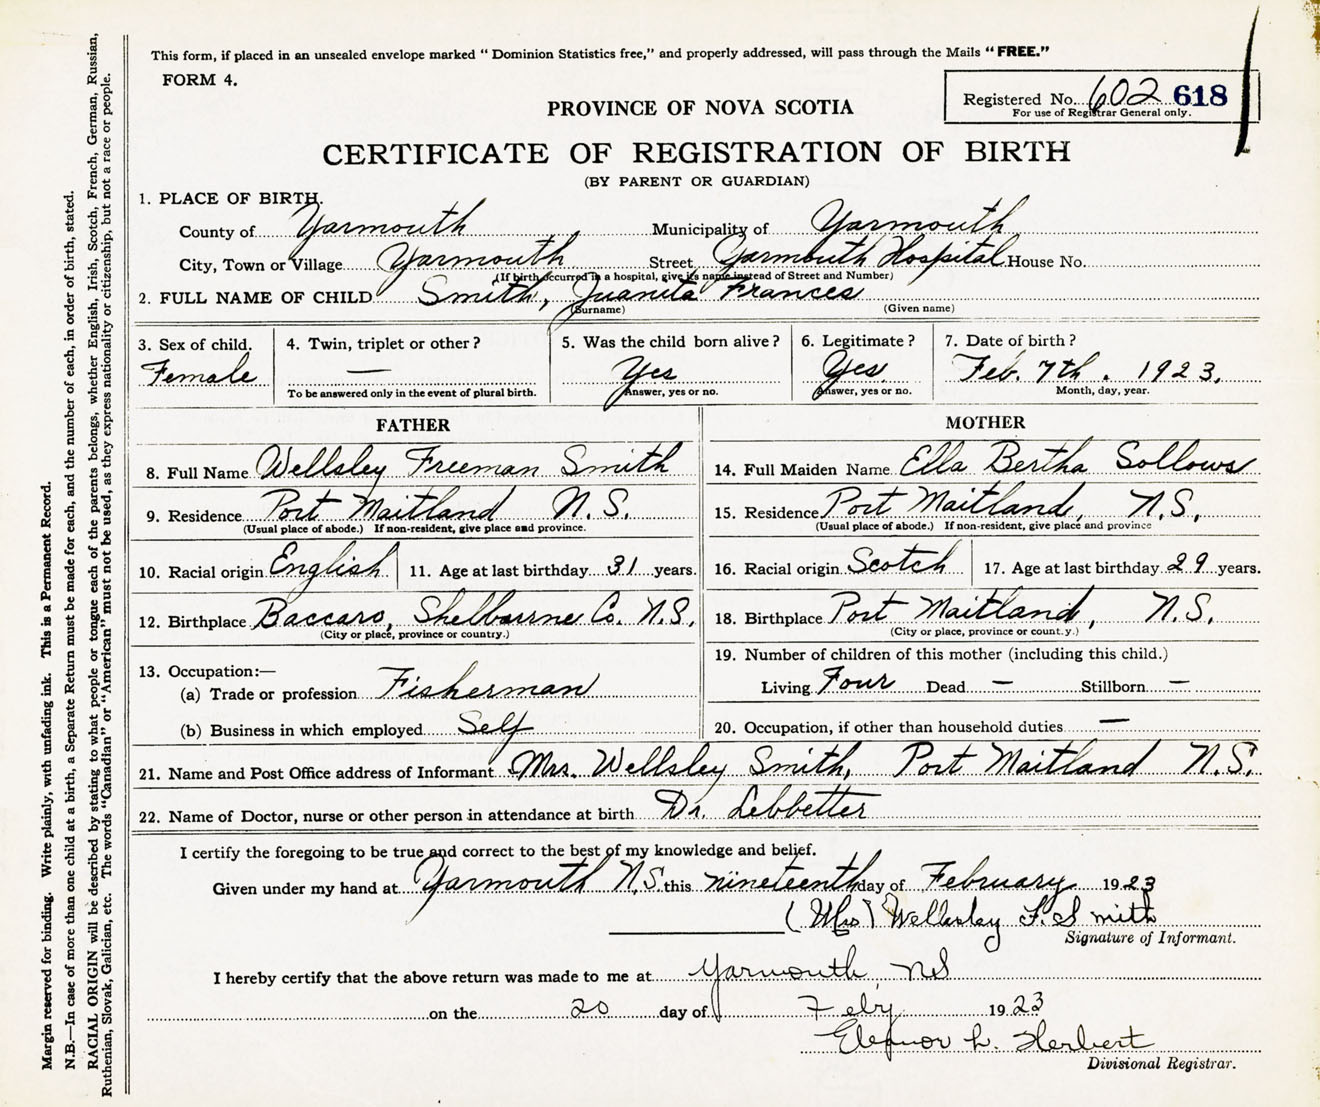 This form, if placed in an unsealed envelope marked “ Dominion Statistics free,” and properly addressed, will pass through the Mails “ FREE.”
FORM 4.
Registered No. 602 618
For use of Registrar General only.
PROVINCE OF NOVA SCOTIA
CERTIFICATE OF REGISTRATION OF BIRTH
(BY PARENT OR GUARDIAN)
1. PLACE OF BIRTH.
County of Yarmouth Municipality of Yarmouth
City, Town or Village Yarmouth Street Yarmouth Hospital House No.
(If birth occurred in a hospital, give its name instead of Street and Number)
2. FULL NAME OF CHILD Smith, Juanita Frances
(Surname) (Given name)
3. Sex of child. 4. Twin, triplet or other ? 5. Was the child born alive ? 6. Legitimate ? 7. Date of birth ?
Female — Yes Yes Feb. 7th. 1923.
To be answered only in the event of plural birth. Answer, yes or no. Answer, yes or no. Month, day, year.
FATHER MOTHER
8. Full Name Wellsley Freeman Smith 14. Full Maiden Name Ella Bertha Sollows
9. Residence Port Maitland N.S. 15. Residence Port Maitland, N.S.
(Usual place of abode.) If non-resident, give place and province. (Usual place of abode.) If non-resident, give place and province
10. Racial origin English 11. Age at last birthday 31 years. 16. Racial origin Scotch 17. Age at last birthday 29 years.
12. Birthplace Baccaro, Shelbourne Co. N.S. 18. Birthplace Port Maitland, N.S.
(City or place, province or country.) (City or place, province or count.y.)
13. Occupation:— 19. Number of children of this mother (including this child.)
(a) Trade or profession Fisherman Living Four Dead — Stillborn —
(b) Business in which employed Self 20. Occupation, if other than household duties —
21. Name and Post Office address of Informant Mrs. Wellsley Smith, Port Maitland N.S.
22. Name of Doctor, nurse or other person in attendance at birth Dr. Lebbetter
I certify the foregoing to be true and correct to the best of my knowledge and belief.
Given under my hand at Yarmouth N.S. this nineteenth day of February 1923
(Mrs) Wellesley F. Smith
Signature of Informant.
I hereby certify that the above return was made to me at Yarmouth, NS
on the 20 day of Feby 1923
Eleanor L. Herbert
Divisional Registrar.
Margin reserved for binding. Write plainly, with unfading ink. This is a Permanent Record.
N.B.—In case of more than one child at a birth, a Separate Return must be made for each, and the number of each, in order of birth, stated.
RACIAL ORIGIN will be described by stating to what people or tongue each of the parents belongs, whether English, Irish, Scotch, French, German, Russian,
Ruthenian, Slovak, Galician, etc. The words “Canadian” or “American” must not be used, as they express nationality or citizenship, but not a race or people.